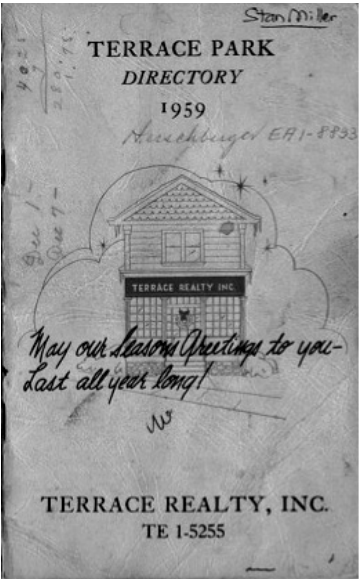 Stan Miller
TERRACE PARK
DIRECTORY
1959
Hirschberger EA1-8833
Dec 1-
Dec 7-
TERRACE REALTY INC.
May our Seasons Greetings to you-
Last all year long!
TERRACE REALTY, INC.
TE 1-5255